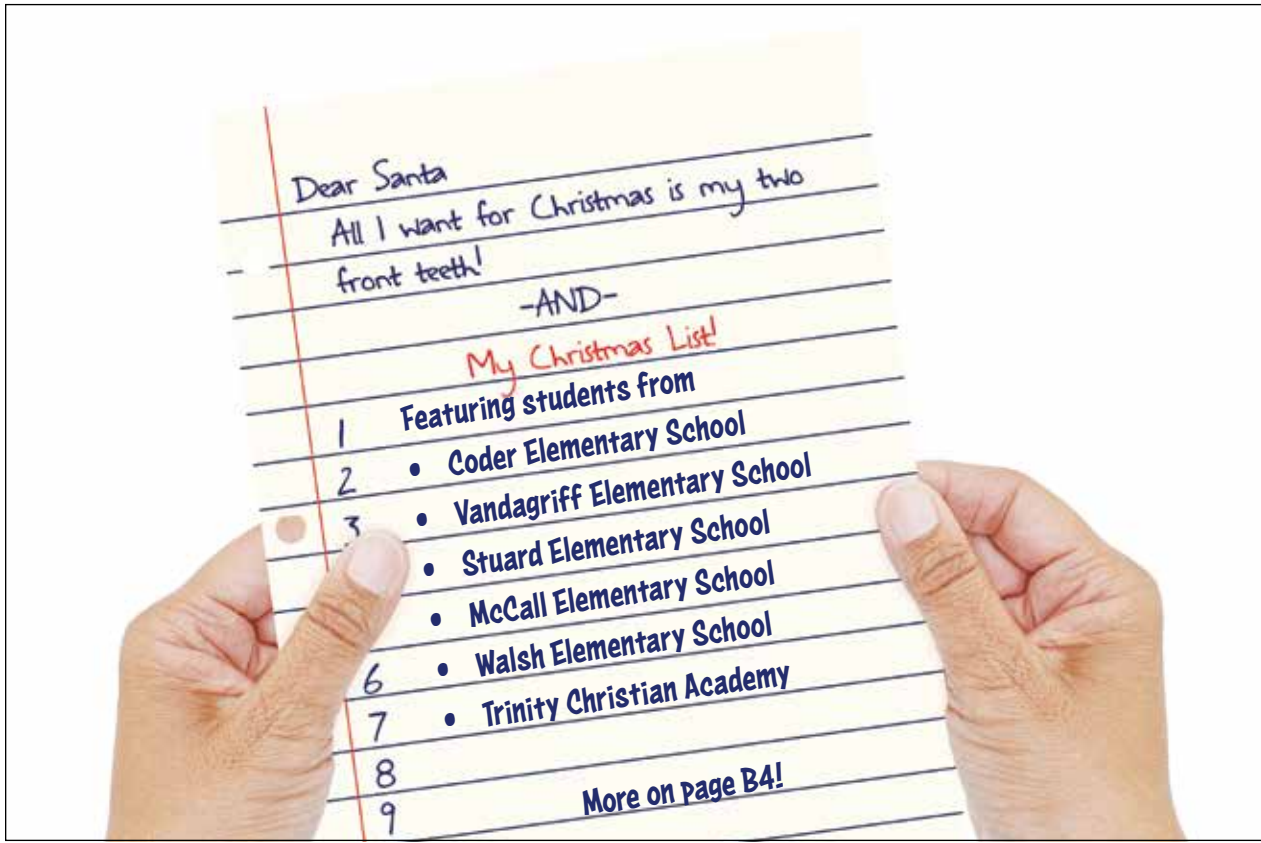 Dear Santa
All I want for Christmas is my two
front teeth!
-AND-
My Christmas List!
1 Featuring students from
2 • Coder Elementary School
3 • Vandagriff Elementary School
• Stuard Elementary School
• McCall Elementary School
6 • Walsh Elementary School
7 • Trinity Christian Academy
8
9 More on page B4!